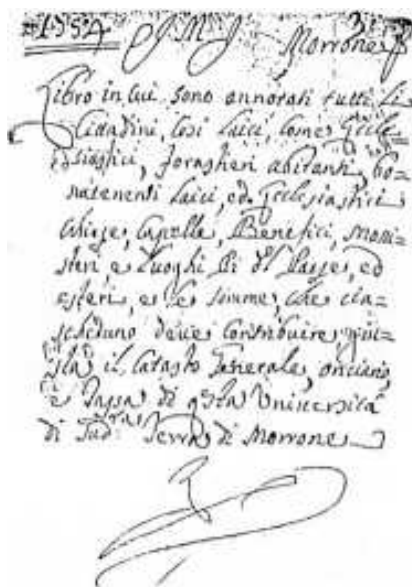 1754 J M J Morrone
Libro in cui sono annotati tutti li
Cittadini, così Laici, come Eccle=
siastici, Forastieri abitanti, Bo=
natenenti Laici, ed Ecclesiastici
Chiese, Capelle, Benefici, Moni=
steri, e Luoghi Pii del Paese, ed
esteri, e le somme, che cia=
scheduno deve contribuire giu=
sta il Catasto Generale, onciario,
e Tassa di qsta Università
di sud.ta Terra di Morrone